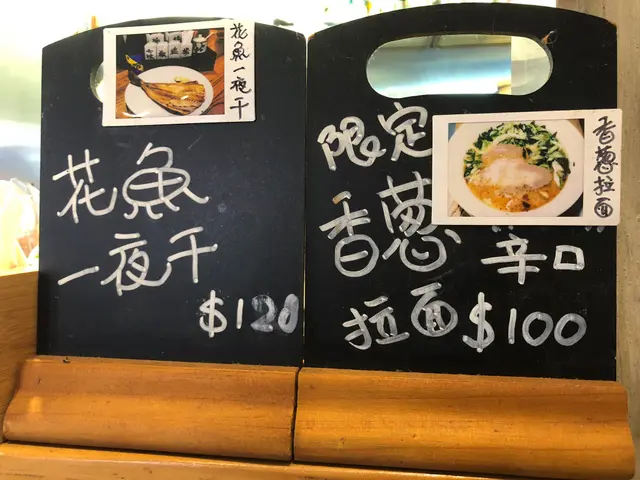 花魚一夜干
花魚
一夜干
$120
香蔥拉面
限定
香蔥
辛口
拉面$100